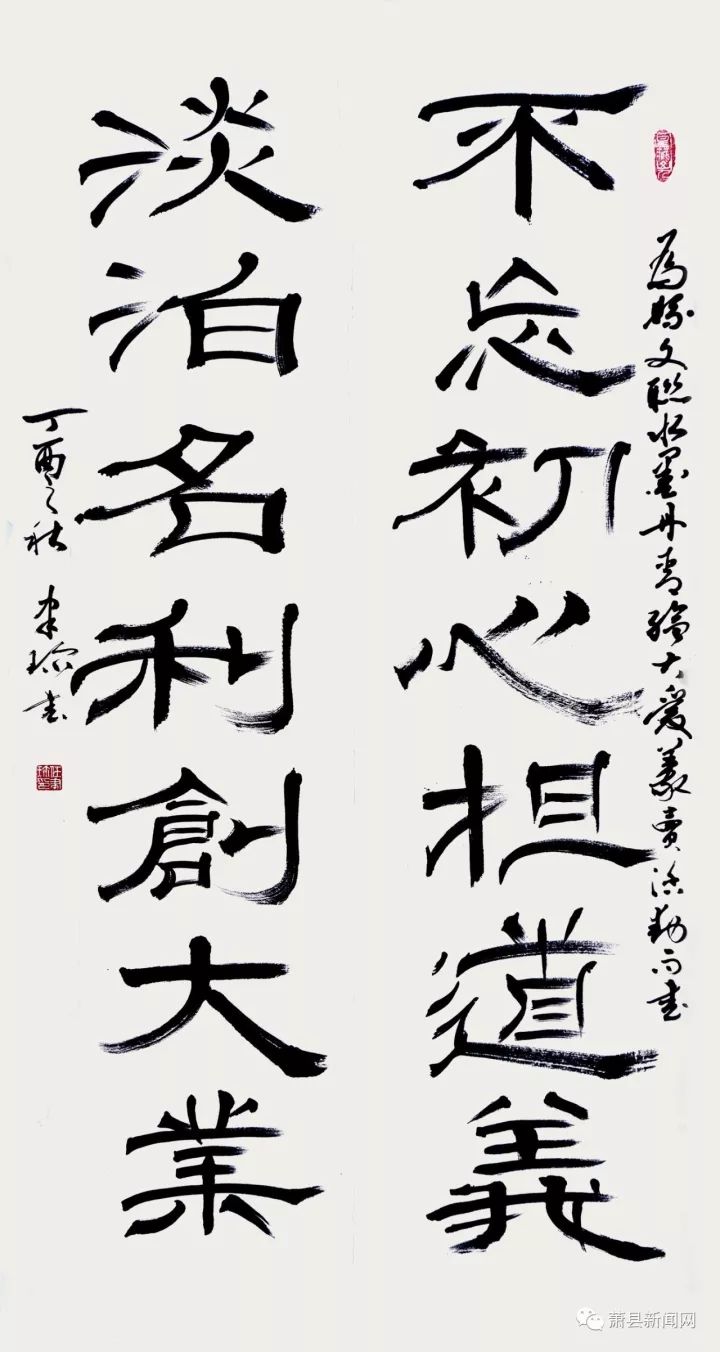 不忘初心担道義
淡泊名利創大業
為 文聯水墨丹青 大愛義賣活動而書
丁酉之秋 書
萧县新闻网